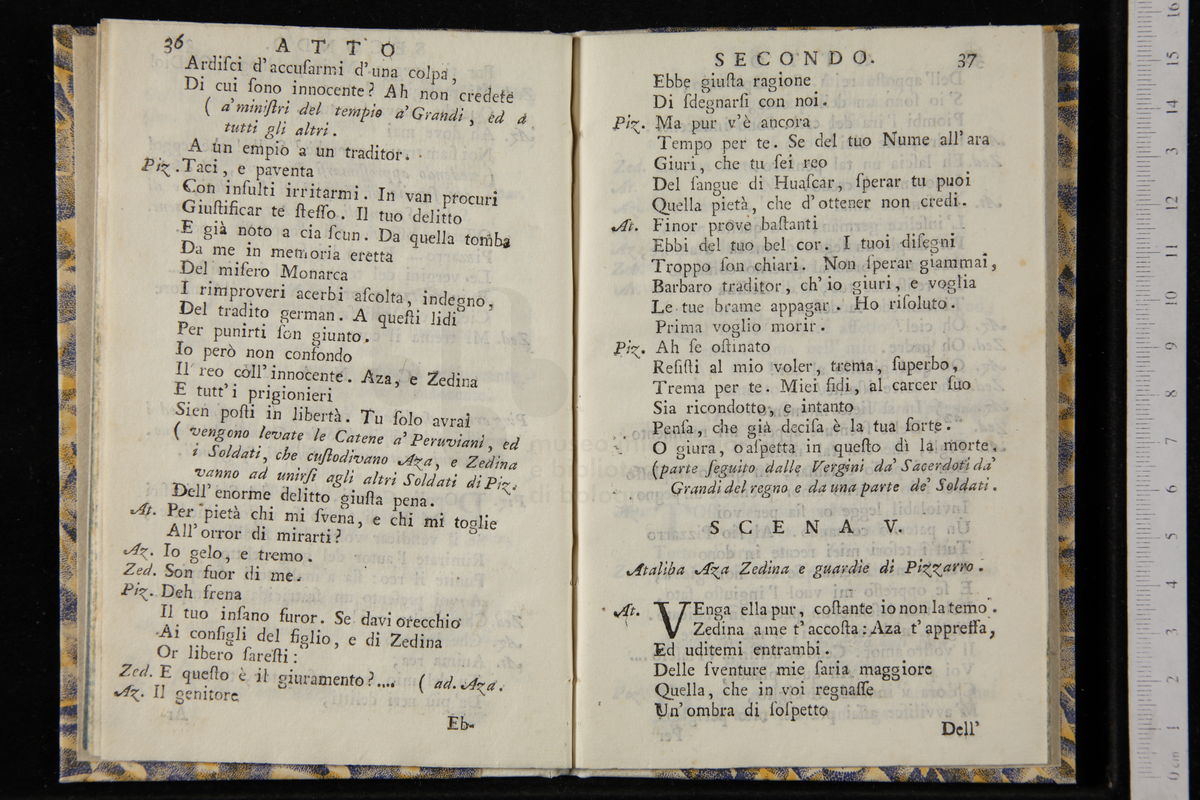 36
ATTO
Ardiſci d'accuſarmi d'una colpa,
Di cui ſono innocente? Ah non credete
( a' miniſtri del tempio a' Grandi, ed a
tutti gli altri.
A un empio a un traditor.
Piz. Taci, e paventa
Con inſulti irritarmi. In van procuri
Giuſtificar te ſteſſo. Il tuo delitto
E già noto a cia ſcun. Da quella tomba
Da me in memoria eretta
Del miſero Monarca
I rimproveri acerbi aſcolta, indegno,
Del tradito german. A queſti lidi
Per punirti ſon giunto.
Io però non confondo
Il reo coll'innocente. Aza, e Zedina
E tutt'i prigionieri
Sien poſti in libertà. Tu ſolo avrai
( vengono levate le Catene a' Peruviani, ed
i Soldati, che cuſtodivano Aza, e Zedina
vanno ad unirſi agli altri Soldati di Piz.
Dell'enorme delitto giuſta pena.
At. Per pietà chi mi ſvena, e chi mi toglie
All'orror di mirarti?
Az. Io gelo, e tremo.
Zed. Son fuor di me.
Piz. Deh frena
Il tuo inſano furor. Se davi orecchio
Ai conſigli del figlio, e di Zedina
Or libero fareſti:
Zed. E queſto è il giuramento?.... ( ad. Aza.
Az. Il genitore
Eb-
SECONDO.
37
Ebbe giuſta ragione
Di ſdegnarſi con noi.
Piz. Ma pur v'è ancora
Tempo per te. Se del tuo Nume all'ara
Giuri, che tu ſei reo
Del ſangue di Huaſcar, ſperar tu puoi
Quella pietà, che d'ottener non credi.
At. Finor prove baſtanti
Ebbi del tuo bel cor. I tuoi diſegni
Troppo ſon chiari. Non ſperar giammai,
Barbaro traditor, ch'io giuri, e voglia
Le tue brame appagar. Ho riſoluto.
Prima voglio morir.
Piz. Ah ſe oſtinato
Reſiſti al mio voler, trema, ſuperbo,
Trema per te. Miei fidi, al carcer ſuo
Sia ricondotto, e intanto
Penſa, che già deciſa è la tua ſorte.
O giura, o aſpetta in queſto dì la morte.
(parte ſeguito dalle Vergini da' Sacerdoti da'
Grandi del regno e da una parte de' Soldati.
SCENA V.
Ataliba Aza Zedina e guardie di Pizzarro.
At. VEnga ella pur, coſtante io non la temo.
Zedina a me t'accoſta: Aza t'appreſſa,
Ed uditemi entrambi.
Delle ſventure mie ſaria maggiore
Quella, che in voi regnaſſe
Un'ombra di ſoſpetto
Dell'